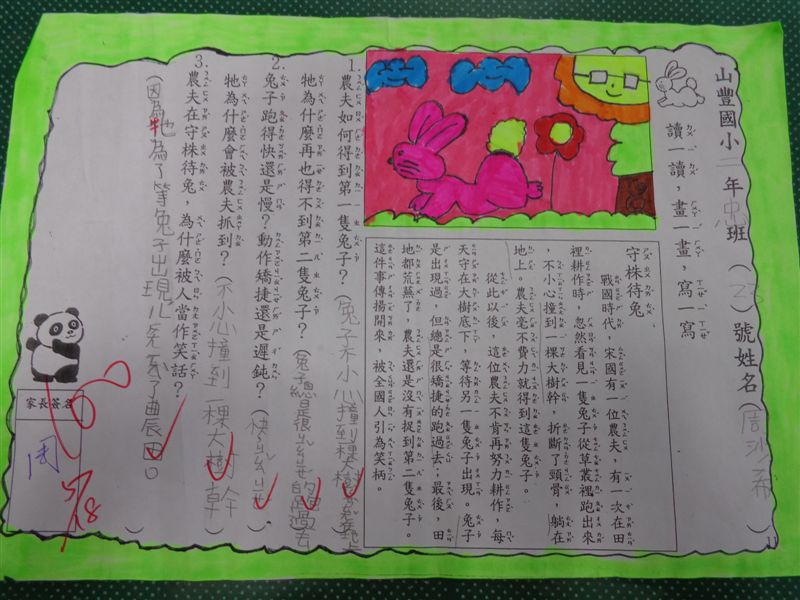 山豐國小二年忠班（23）號姓名（周
讀一讀，畫一畫，寫一寫
守株待兔
戰國時代，宋國有一位農夫，有一次在田
裡耕作時，忽然看見一隻兔子從草叢裡跑出來
，不小心撞到一棵大樹幹，折斷了頸骨，躺在
地上。農夫毫不費力就得到這隻兔子。
從此以後，這位農夫不肯再努力耕作，每
天守在大樹底下，等待另一隻兔子出現。兔子
是出現過，但總是很矯捷的跑過去；最後，田
地都荒蕪了，農夫還是沒有捉到第二隻兔子。
這件事傳揚開來，被全國人引為笑柄。
1.農夫如何得到第一隻兔子？（兔子不小心撞到棵大樹
牠為什麼再也得不到第二隻兔子？（兔子總是很ㄐㄧㄠˇ捷的跑過去
2.兔子跑得快還是慢？動作矯捷還是遲鈍？（快
牠為什麼會被農夫抓到？（不小心撞到一棵大樹幹）
3.農夫在守株待兔，為什麼被人當作笑話？
（因為牠為了等兔子出現
農田。）
家長簽名
周
100
11